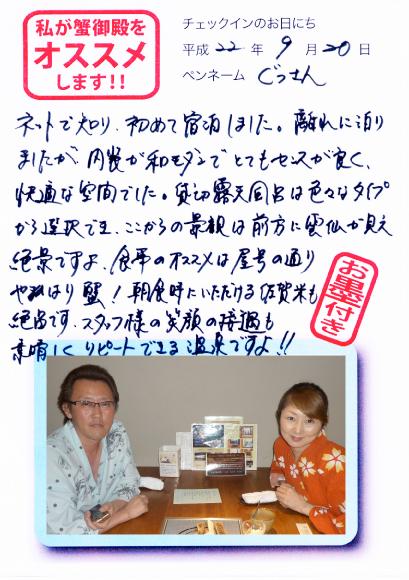 私が蟹御殿を
オススメ
します!!
チェックインのお日にち
平成 22 年 9 月 20 日
ペンネーム ぐっさん
ネットで知り、初めて宿泊しました。離れに泊り
ましたが、内装が和モダンでとてもセンスが良く、
快適な空間でした。貸切露天風呂は色々なタイプ
から選択でき、ここからの景観は前方に雲仙が見え
絶景ですよ。食事のオススメは屋号の通り
やっぱり蟹!朝食時にいただける佐賀米も
絶品です。スタッフ様の笑顔の接遇も
素晴しくリピートできる温泉ですよ!!
お墨付き